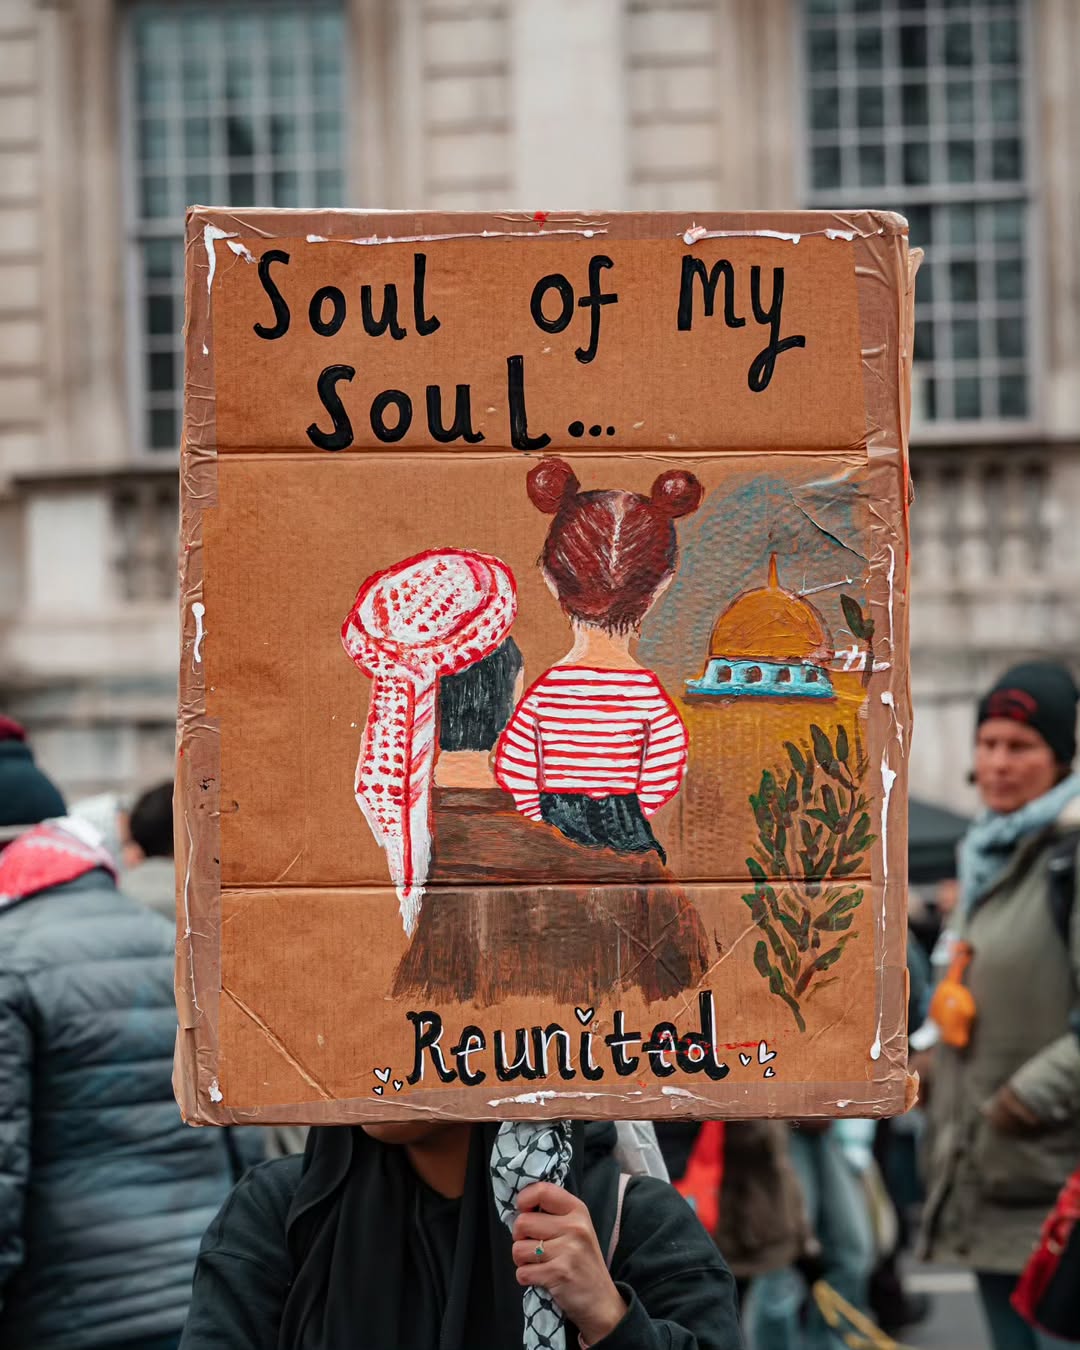 Soul of My
Soul...
Reunited